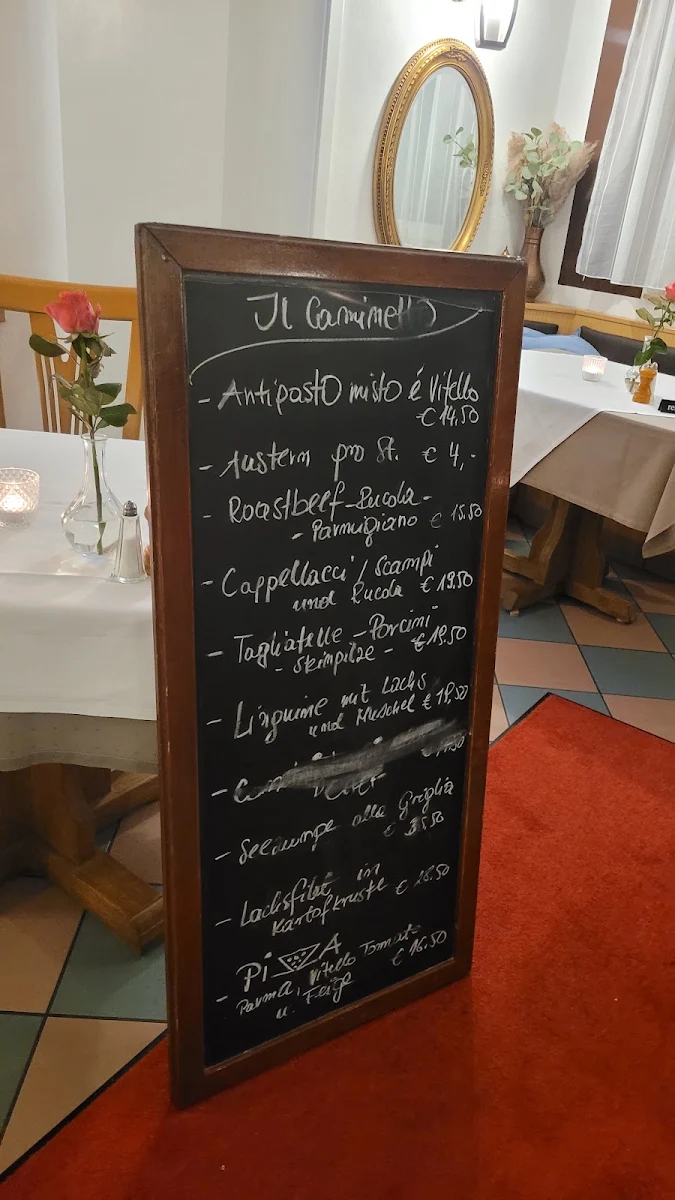 Il Caminetto
- Antipasto misto é Vitello
€ 14.50
- Austern pro St. € 4,-
- Roastbeef-Rucola-
- Parmigiano € 15.50
- Cappellacci / Scampi
und Rucola € 19.50
- Tagliatelle - Porcini
- Steinpilze - € 19.50
- Linguine mit Lachs
und Muschel € 19,50
- Seezunge alla Griglia
€ 35.50
- Lachsfilet in
Kartofkruste € 28.50
- PiZZA
Parma, Vitello Tomate
u. Feige € 16.50